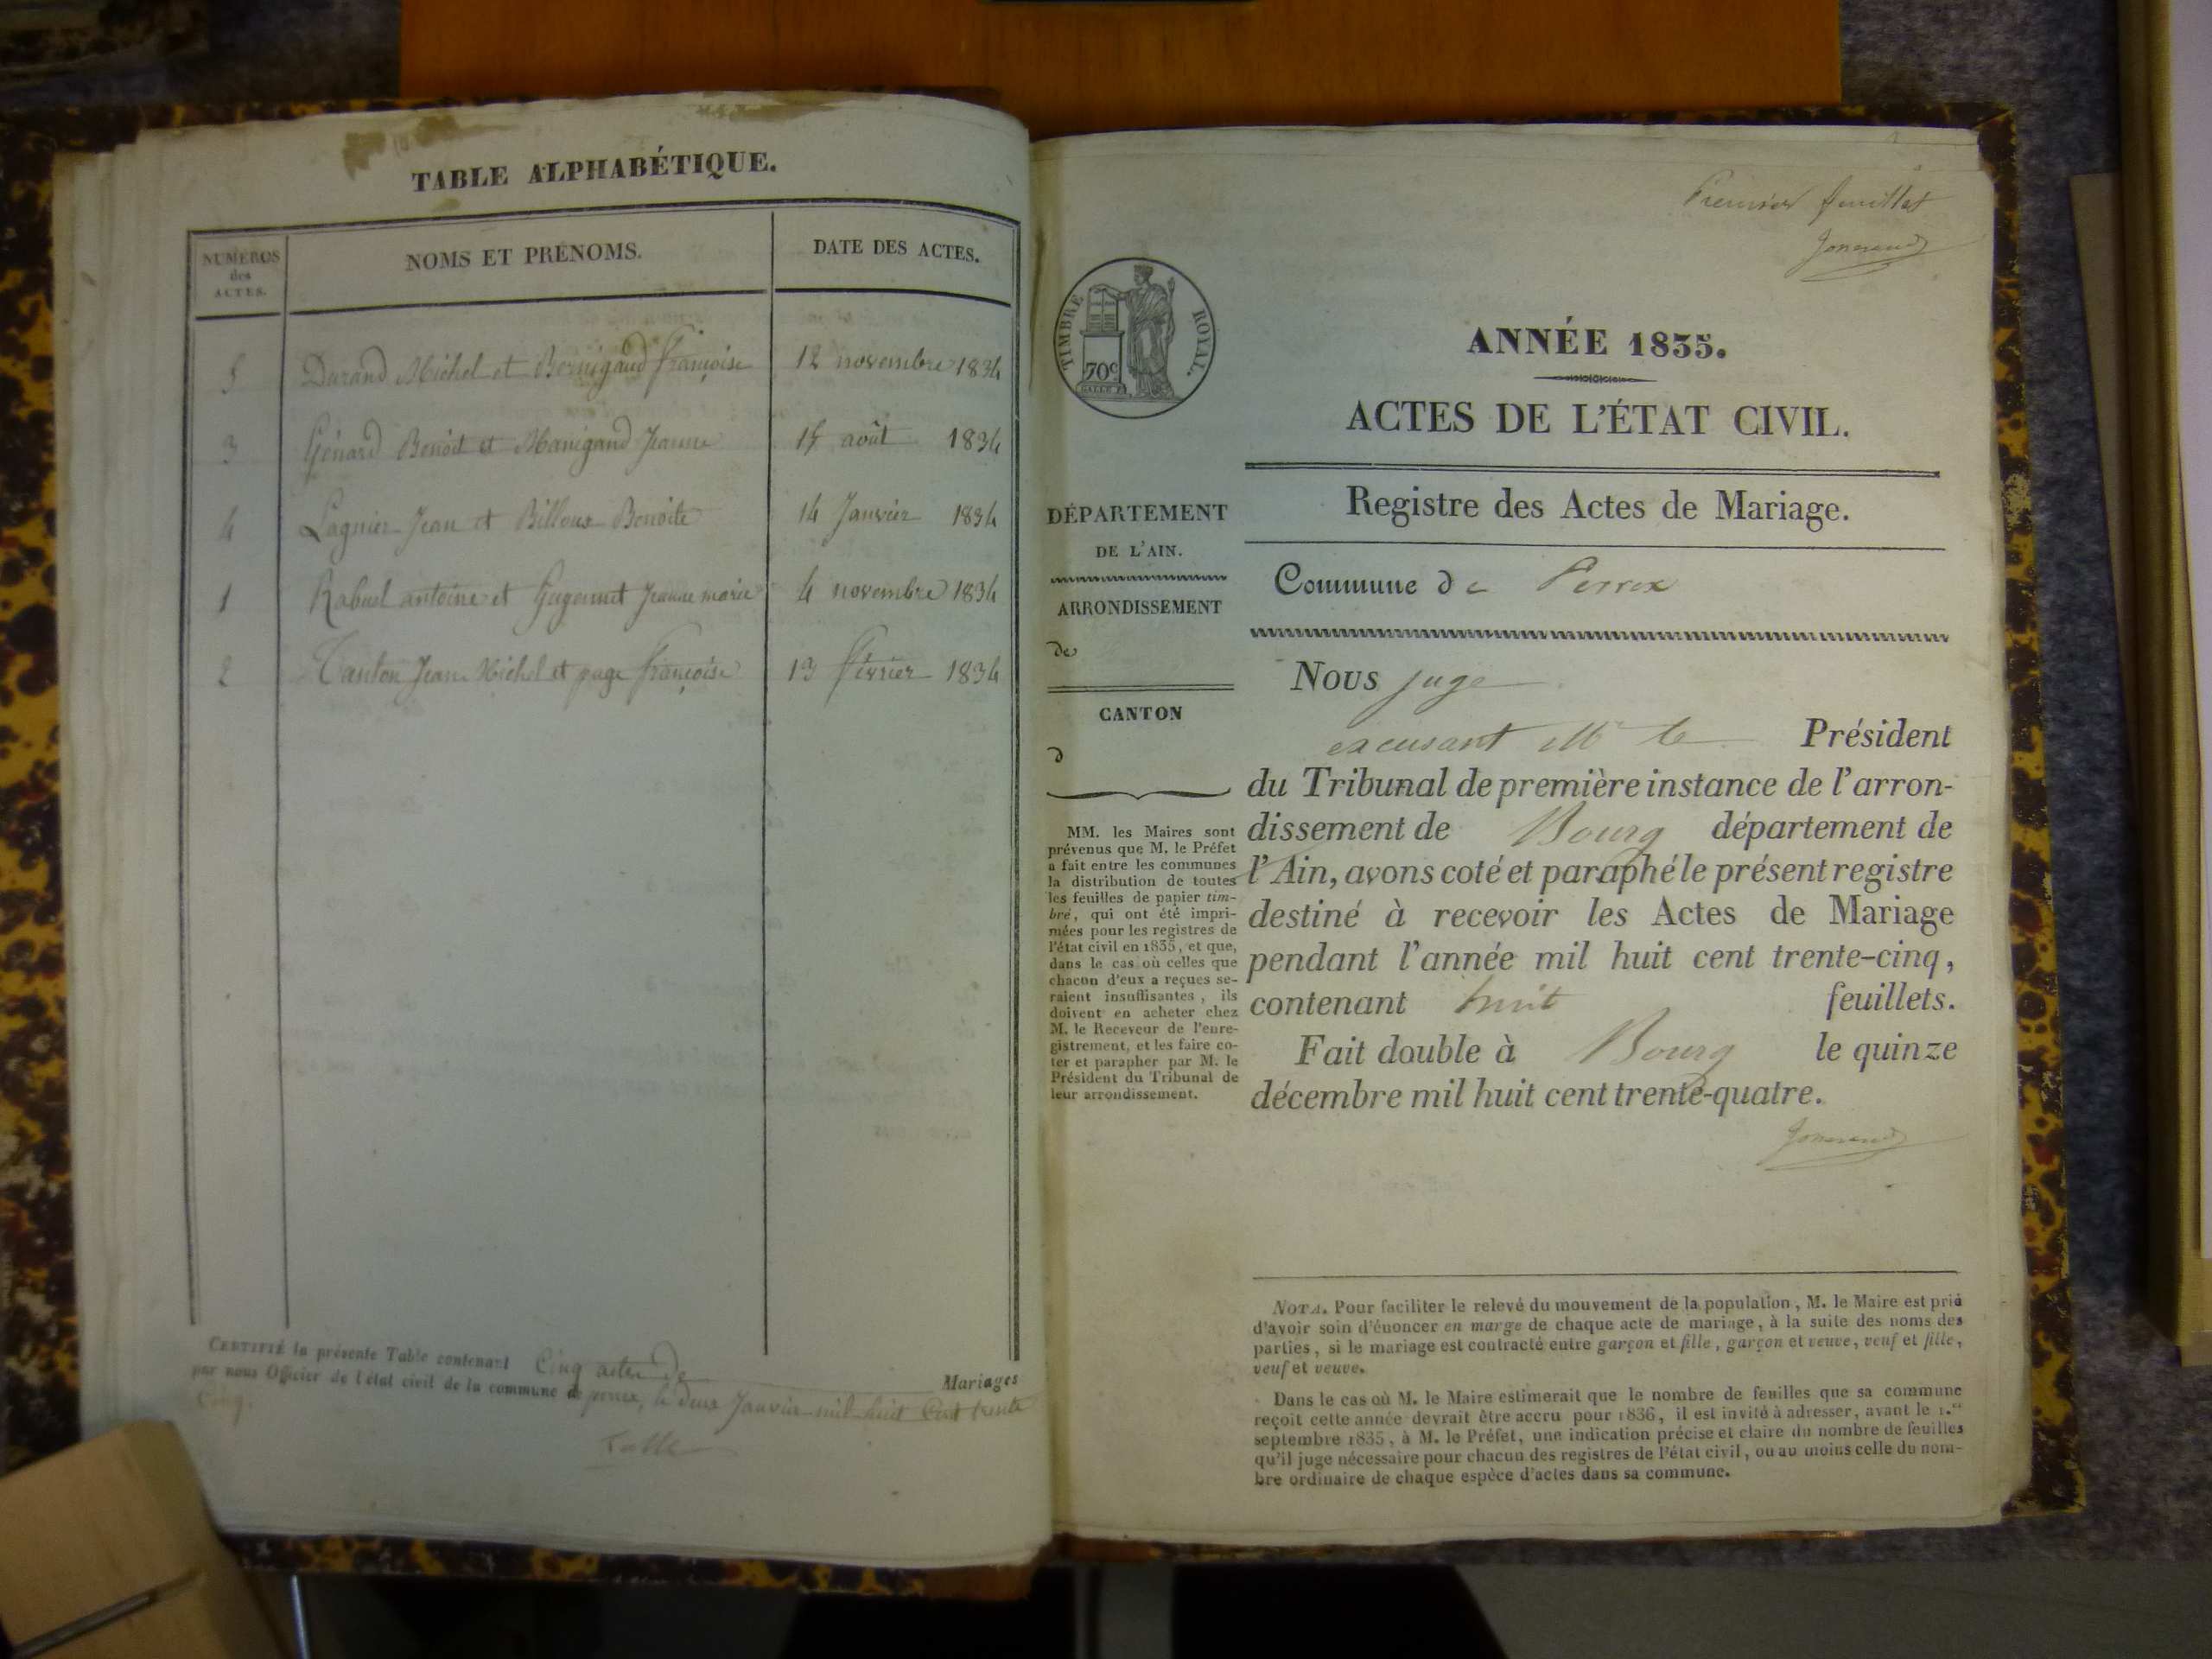 TABLE ALPHABÉTIQUE.
NUMÉROS des ACTES. NOMS ET PRÉNOMS. DATE DES ACTES.
5 Durand Michel et Bernigaud françoise 12 novembre 1834
3 Génard Benoit et Manigand Jeanne 15 août 1834
4 Lagnier Jean et Billoux Benoite 14 Janvier 1834
1 Rabuel antoine et Gugennet Jeanne marie 4 novembre 1834
2 Tanton Jean Michel et page françoise 13 février 1834
CERTIFIÉ la présente Table contenant Cinq actes de Mariages
par nous Officier de l'état civil de la commune de perrex, le deux Janvier mil huit Cent trente
Cinq.
Premier feuillet
TIMBRE ROYAL.
70c
ANNÉE 1835.
ACTES DE L'ÉTAT CIVIL.
Registre des Actes de Mariage.
Commune de Perrex
DÉPARTEMENT
DE L'AIN.
ARRONDISSEMENT
de
CANTON
d
MM. les Maires sont
prévenus que M. le Préfet
a fait entre les communes
la distribution de toutes
les feuilles de papier tim-
bré, qui ont été impri-
mées pour les registres de
l'état civil en 1835, et que,
dans le cas où celles que
chacun d'eux a reçues se-
raient insuffisantes, ils
doivent en acheter chez
M. le Receveur de l'enre-
gistrement, et les faire co-
ter et parapher par M. le
Président du Tribunal de
leur arrondissement.
Nous juge
excusant Mr le Président
du Tribunal de première instance de l'arron-
dissement de Bourg département de
l'Ain, avons coté et paraphé le présent registre
destiné à recevoir les Actes de Mariage
pendant l'année mil huit cent trente-cinq,
contenant huit feuillets.
Fait double à Bourg le quinze
décembre mil huit cent trente-quatre.
NOTA. Pour faciliter le relevé du mouvement de la population, M. le Maire est prié
d'avoir soin d'énoncer en marge de chaque acte de mariage, à la suite des noms des
parties, si le mariage est contracté entre garçon et fille, garçon et veuve, veuf et fille,
veuf et veuve.
Dans le cas où M. le Maire estimerait que le nombre de feuilles que sa commune
reçoit cette année devrait être accru pour 1836, il est invité à adresser, avant le 1.er
septembre 1835, à M. le Préfet, une indication précise et claire du nombre de feuilles
qu'il juge nécessaire pour chacun des registres de l'état civil, ou au moins celle du nom-
bre ordinaire de chaque espèce d'actes dans sa commune.